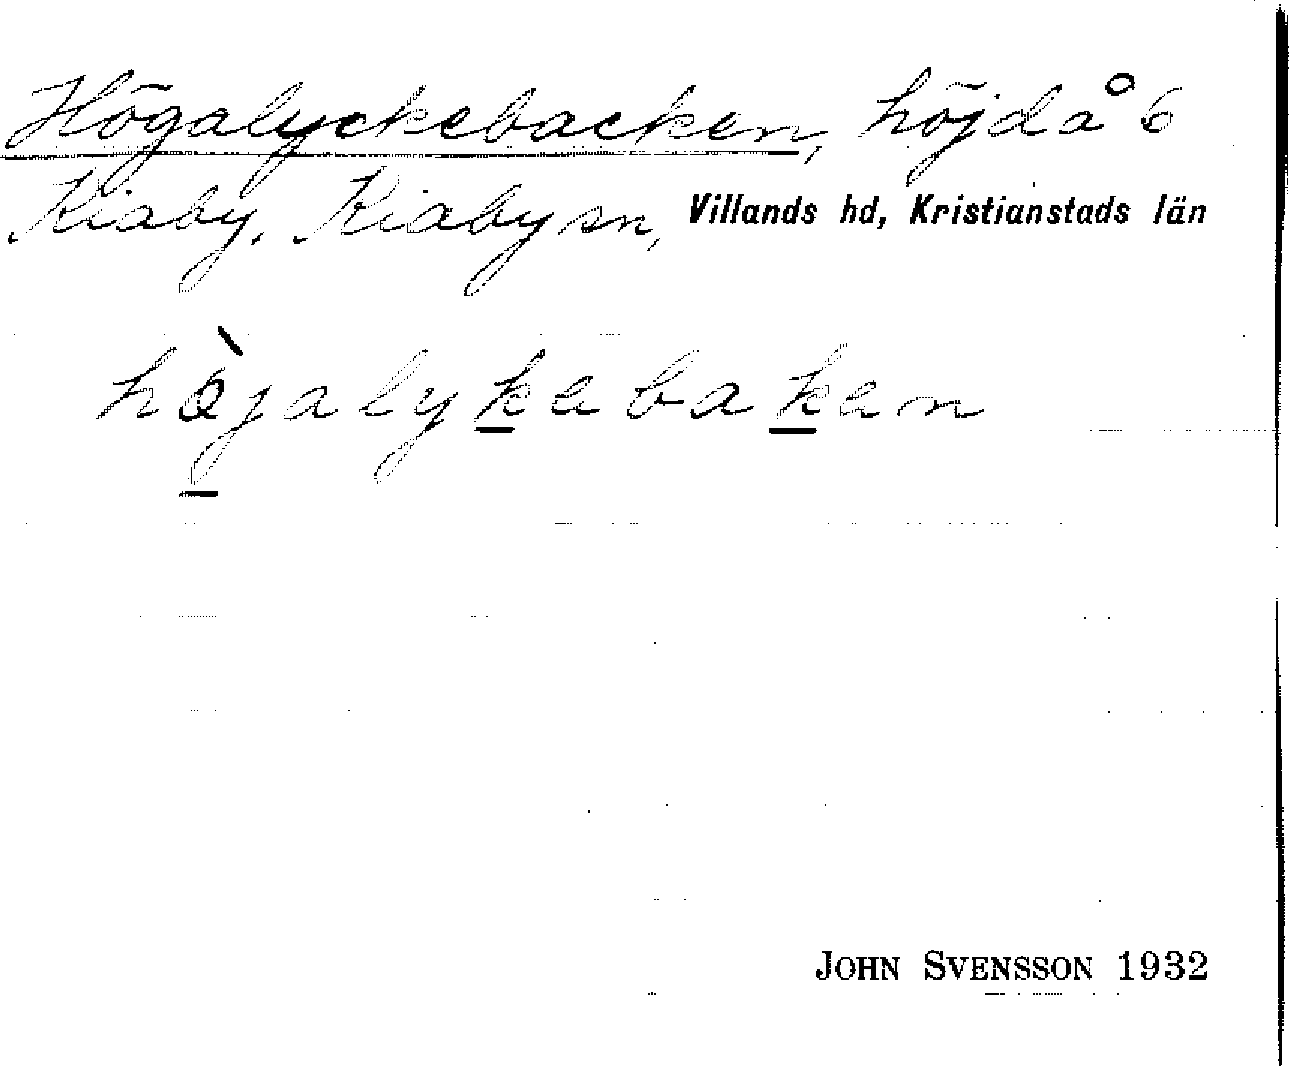 Högalyckebacken, höjd å 6
Kiaby, Kiaby sn, Villands hd, Kristianstads län
hö̀jalykebaken
JOHN SVENSSON 1932